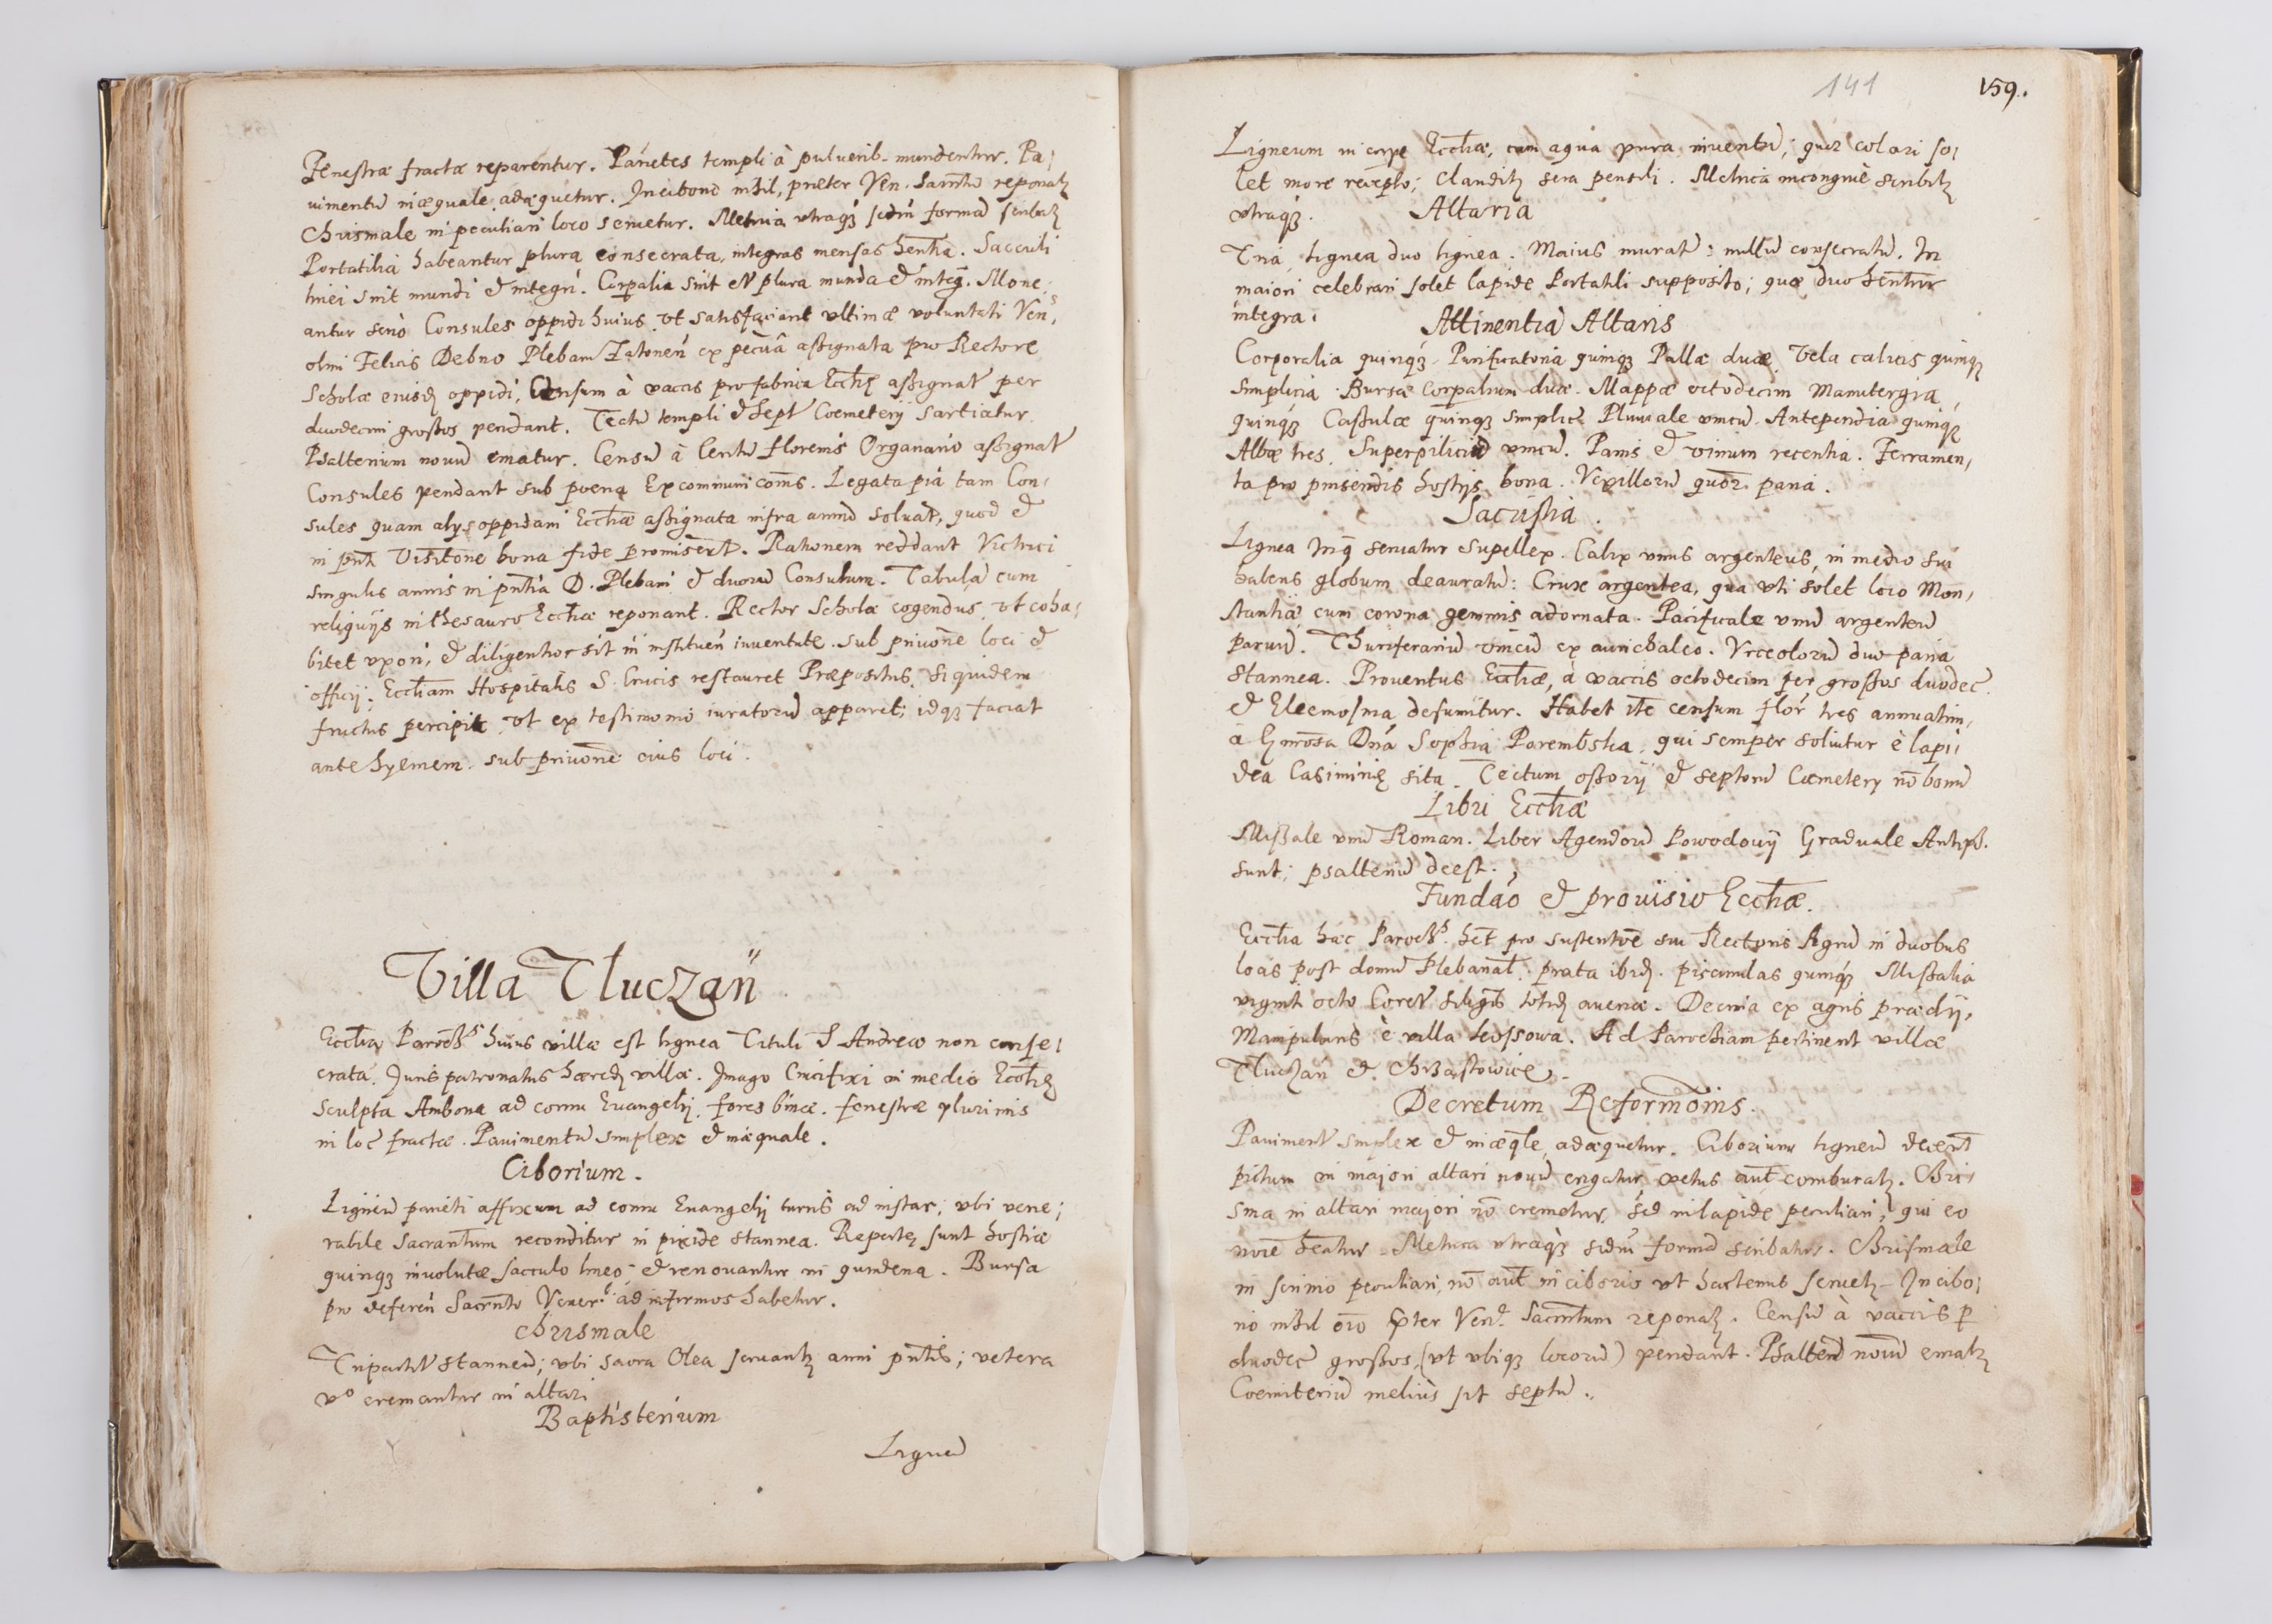 Fenestræ fractæ reparentur. Parietes templi à pulverib. mundentur. Pa,
uimentũ inæquale adæquetur. In cibor. nihil, præter Ven. Sacrm̃tũ reponatʒ
Chrismale in peculiari loco seruetur. Metrica vtraqʒ scdm̃ formã scribatʒ
Portatilia habeantur plura consecrata, integras mensas hentia. Sacculi
linei sint mundi & integri. Corporalia sint & plura munda & integ. Mone,
antur seriò Consules oppidi huius, vt satisfaciant vltimæ voluntati Ven,
olim Felicis Debno Plebani Zatorień ex pecũâ assignata pro Rectore
Scholæ eiusđ oppidi. Censum à vaccis pro fabrica Ecctię assignat̃ per
duodecim grossos pendant. Tectũ templi & sept̃ Coemeterij sartiatur
Psalterium nouũ ematur. Censũ à Centũ florenis Organario assignat̃
Consules pendant sub poena Excommunicoñis. Legata pia tam Con,
sules quam alij oppidani Ecctiæ assignata infra annũ soluat, quod &
in pñti Visitoñe bona fide promisert̃. Rationem reddant Victrici
singulis annis in pñtia D. Plebani & duorũ Consulum. Tabulã cum
religuijs in thesauro Ecctiæ reponant. Rector Scholæ cogendus, vt coha,
bitet vxori, & diligentior sit in instituen̄ iuuentute. sub priuoñe loci &
officij. Ecctiam Hospitalis S. Crucis restauret Præpositus, siquidem
fructus percipit, vt ex testimonio iuratorũ apparet; idqʒ faciat
ante hyemem sub priuoñe eius loci.
Villa Tluczań
Ecctia Paroch huius villæ est lignea Tituli S Andreæ non conse,
crata. Juris patronatus hæređ villæ. Imago Crucifixi in medio Ecctię
sculpta Ambona ad cornu Euangelij, fores binæ. fenestræ plurimis
in loc̃ fractæ. Pauimentũ simplex & inæquale.
Ciborium.
Ligneũ parieti affixum ad cornu Euangelij turris ad instar, vbi vene,
rabile Sacramtum reconditur in pixide stannea. Repertę sunt hostiæ
quinqʒ inuolutæ sacculo lineo, & renouantur in quindena. Bursa
pro deferen̄ Sacrm̃to Vener. ad infirmos habetur.
Chrismale
Tripartit̃ stanneũ; vbi sacra Olea seruantʒ anni pñtis; vetera
v° cremantur in altari
Baptisterium
Ligneũ
141 159.
Ligneum in corpe Ecctiæ, cum aqua pura inuentũ; quæ colari so,
let more recepto; Clauditʒ sera pensili. Metrica incongruè scribitʒ
vtraqʒ.
Altaria
Tria, lignea duo lignea. Maius murat̃: nullũ consecratũ. In
maiori celebrari solet lapide Portatili supposito; quæ duo hentur
integra.
Attinentia Altaris
Corporalia quinqʒ Purificatoria quinqʒ Pallæ duæ. Vela calicis quinqʒ
simplicia. Bursæ Corpalium duæ. Mappæ octodecim Manutergia
quinqʒ Cassulæ quinqʒ simplic̃ Pluuiale vnicũ. Antependia quinqʒ
Albæ tres. Superpiliciũ vnicũ. Panis & vinum recentia. Ferramen,
ta pro pinsendis hostijs bona. Vexillorũ quor̃ paria.
Sacristia.
Lignea In q̃ seruatur Supellex. Calix vnus argenteus, in medio sui
habens globum deauratũ: Crux argentea, qua vti solet loco Mon,
strantiæ, cum corona gemmis adornata. Pacificale vnũ argenteũ
paruũ. Thuriferariũ vnicũ ex aurichalco. Vrceolorũ duo paria
stannea. Prouentus Ecctiæ, à vaccis octodecim per grossos duodec̃.
& Eleemosina desumitur. Habet itẽ censum flor̃ tres annuatim,
a Gnrosa Dña Sophia Parembska, qui semper soluitur è lapi,
dea Casimirię sita. Tectum ossorij & septorũ Cæmeterij nõ bonũ
Libri Ecctiæ
Missale vnũ Roman. Liber Agendorũ Powodouij Graduale Antiph.
sunt; psalteriũ deest.
Fundaõ & prouisio Ecctiæ.
Ecctia hæc Paroch. het̃ pro sustentoẽ sui Rectoris Agrũ in duobus
locis post domũ Plebanal̃. prata ibiđ. piscinulas quinqʒ Missalia
viginti octo Coret̃ siliginis totiđ auenæ. Decima ex agris prædij,
Manipularis è villa Lossowa. Ad Parochiam pertinent villæ
Tluczań & Chrzastowice.
Decretum Reformoñis.
Pauiment̃ simplex & inæqle, adæquetur. Ciborium ligneũ decent̃
pictum in majori altari nouũ erigatur, vetus aut̃ comburatʒ. Chri,
sma in altari majori nõ cremetur, sed in lapide peculiari, qui eo
noie heatur. Metrica vtraqʒ scdm̃ formã scribatur. Chrismale
in scrinio peculiari, nõ aut̃ in ciborio vt hactenus seruetʒ. In cibo,
rio nihil oĩo ꝑter Ven. Sacrm̃tum reponatʒ. Censũ à vaccis ꝑ
duodec̃ grossos (vt vbiqʒ locorũ) pendant. Psalteriũ nouũ ematʒ
Coemiteriũ meliùs sit septũ.